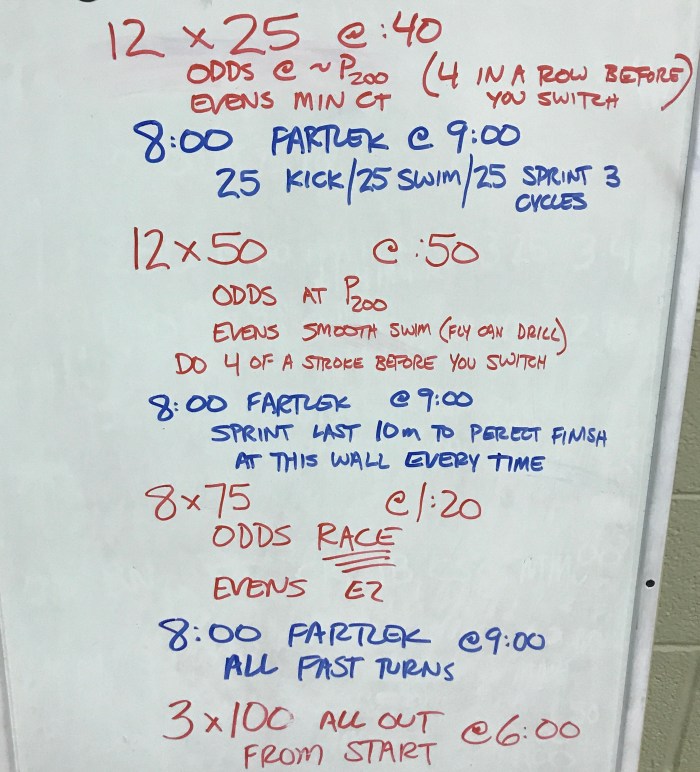 12 x 25 @ :40
ODDS @ ~ P200 (4 IN A ROW BEFORE
EVENS MIN CT YOU SWITCH)
8:00 FARTLEK @ 9:00
25 KICK/25 SWIM/25 SPRINT 3
CYCLES
12 x 50 @ :50
ODDS AT P200
EVENS SMOOTH SWIM (FLY CAN DRILL)
DO 4 OF A STROKE BEFORE YOU SWITCH
8:00 FARTLEK @ 9:00
SPRINT LAST 10m TO PERECT FINISH
AT THIS WALL EVERY TIME
8 x 75 @ 1:20
ODDS RACE
EVENS EZ
8:00 FARTLEK @ 9:00
ALL FAST TURNS
3 x 100 ALL OUT @ 6:00
FROM START